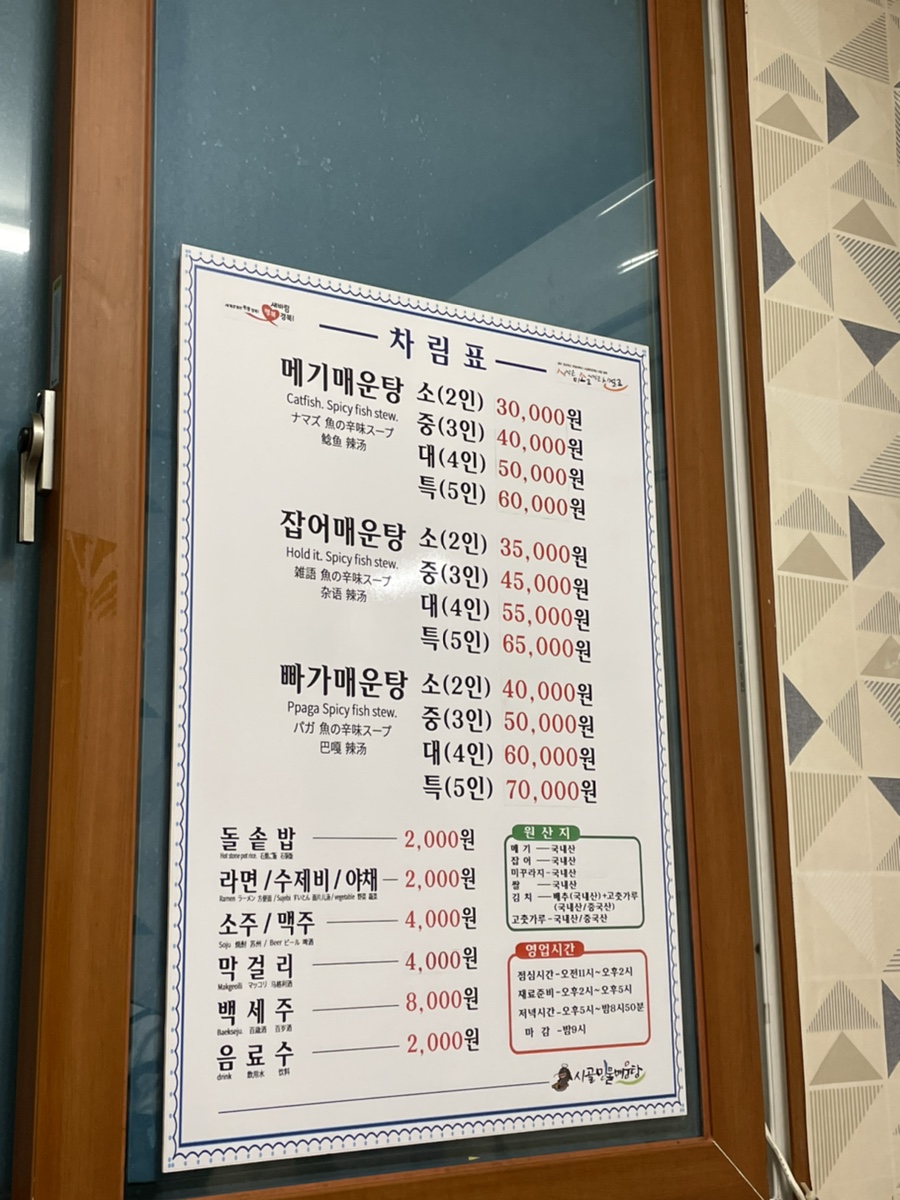 새바람
행복 경북!
차림표
메기매운탕
Catfish. Spicy fish stew.
ナマズ 魚の辛味スープ
鲶鱼 辣汤
소(2인) 30,000원
중(3인) 40,000원
대(4인) 50,000원
특(5인) 60,000원
잡어매운탕
Hold it. Spicy fish stew.
雑語 魚の辛味スープ
杂语 辣汤
소(2인) 35,000원
중(3인) 45,000원
대(4인) 55,000원
특(5인) 65,000원
빠가매운탕
Ppaga Spicy fish stew.
パガ 魚の辛味スープ
巴嘎 辣汤
소(2인) 40,000원
중(3인) 50,000원
대(4인) 60,000원
특(5인) 70,000원
돌솥밥 2,000원
Hot stone pot rice.
라면/수제비/야채 2,000원
Ramen ラーメン 方便面 / Sujebi すいとん 面片儿汤 / vegetable 野菜 蔬菜
소주/맥주 4,000원
Soju 焼酎 苏州 / Beer ビール 啤酒
막걸리 4,000원
Makgeolli マッコリ 马格利酒
백세주 8,000원
Baekseju. 百歳酒 百岁酒
음료수 2,000원
drink 飲用水 饮料
원산지
메기 ― 국내산
잡어 ― 국내산
미꾸라지-국내산
쌀 ― 국내산
김치 ― 배추(국내산)+고춧가루
(국내산/중국산)
고춧가루-국내산/중국산
영업시간
점심시간-오전11시~오후2시
재료준비-오후2시~오후5시
저녁시간-오후5시~밤8시50분
마감 -밤9시
시골민물매운탕